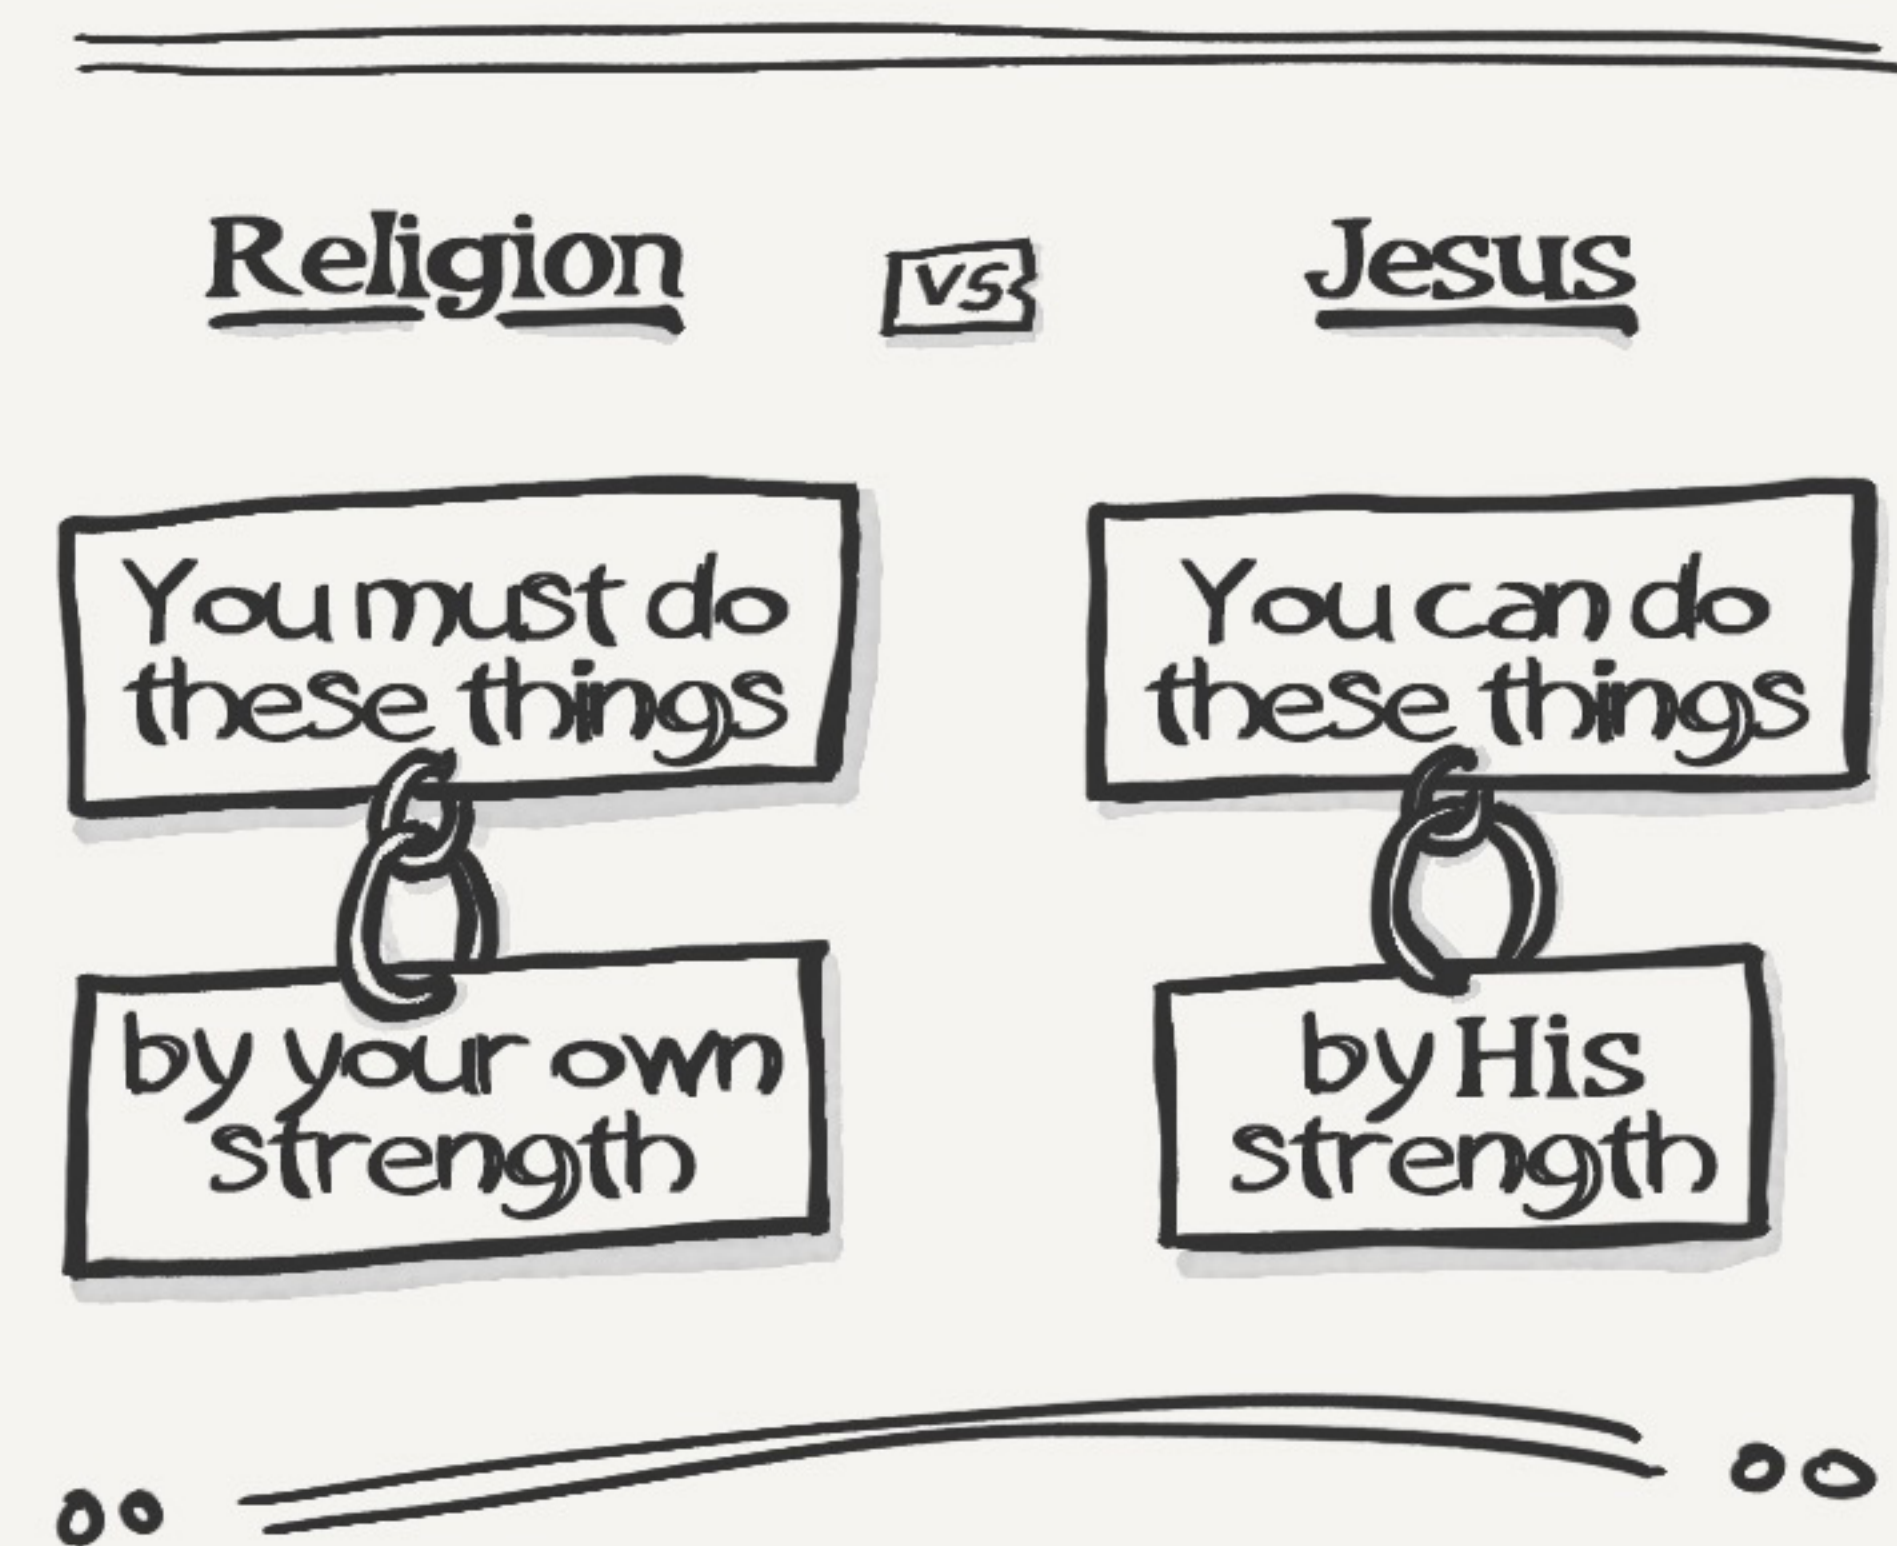 Religion
vs
Jesus
You must do
these things
by your own
strength
You can do
these things
by His
strength